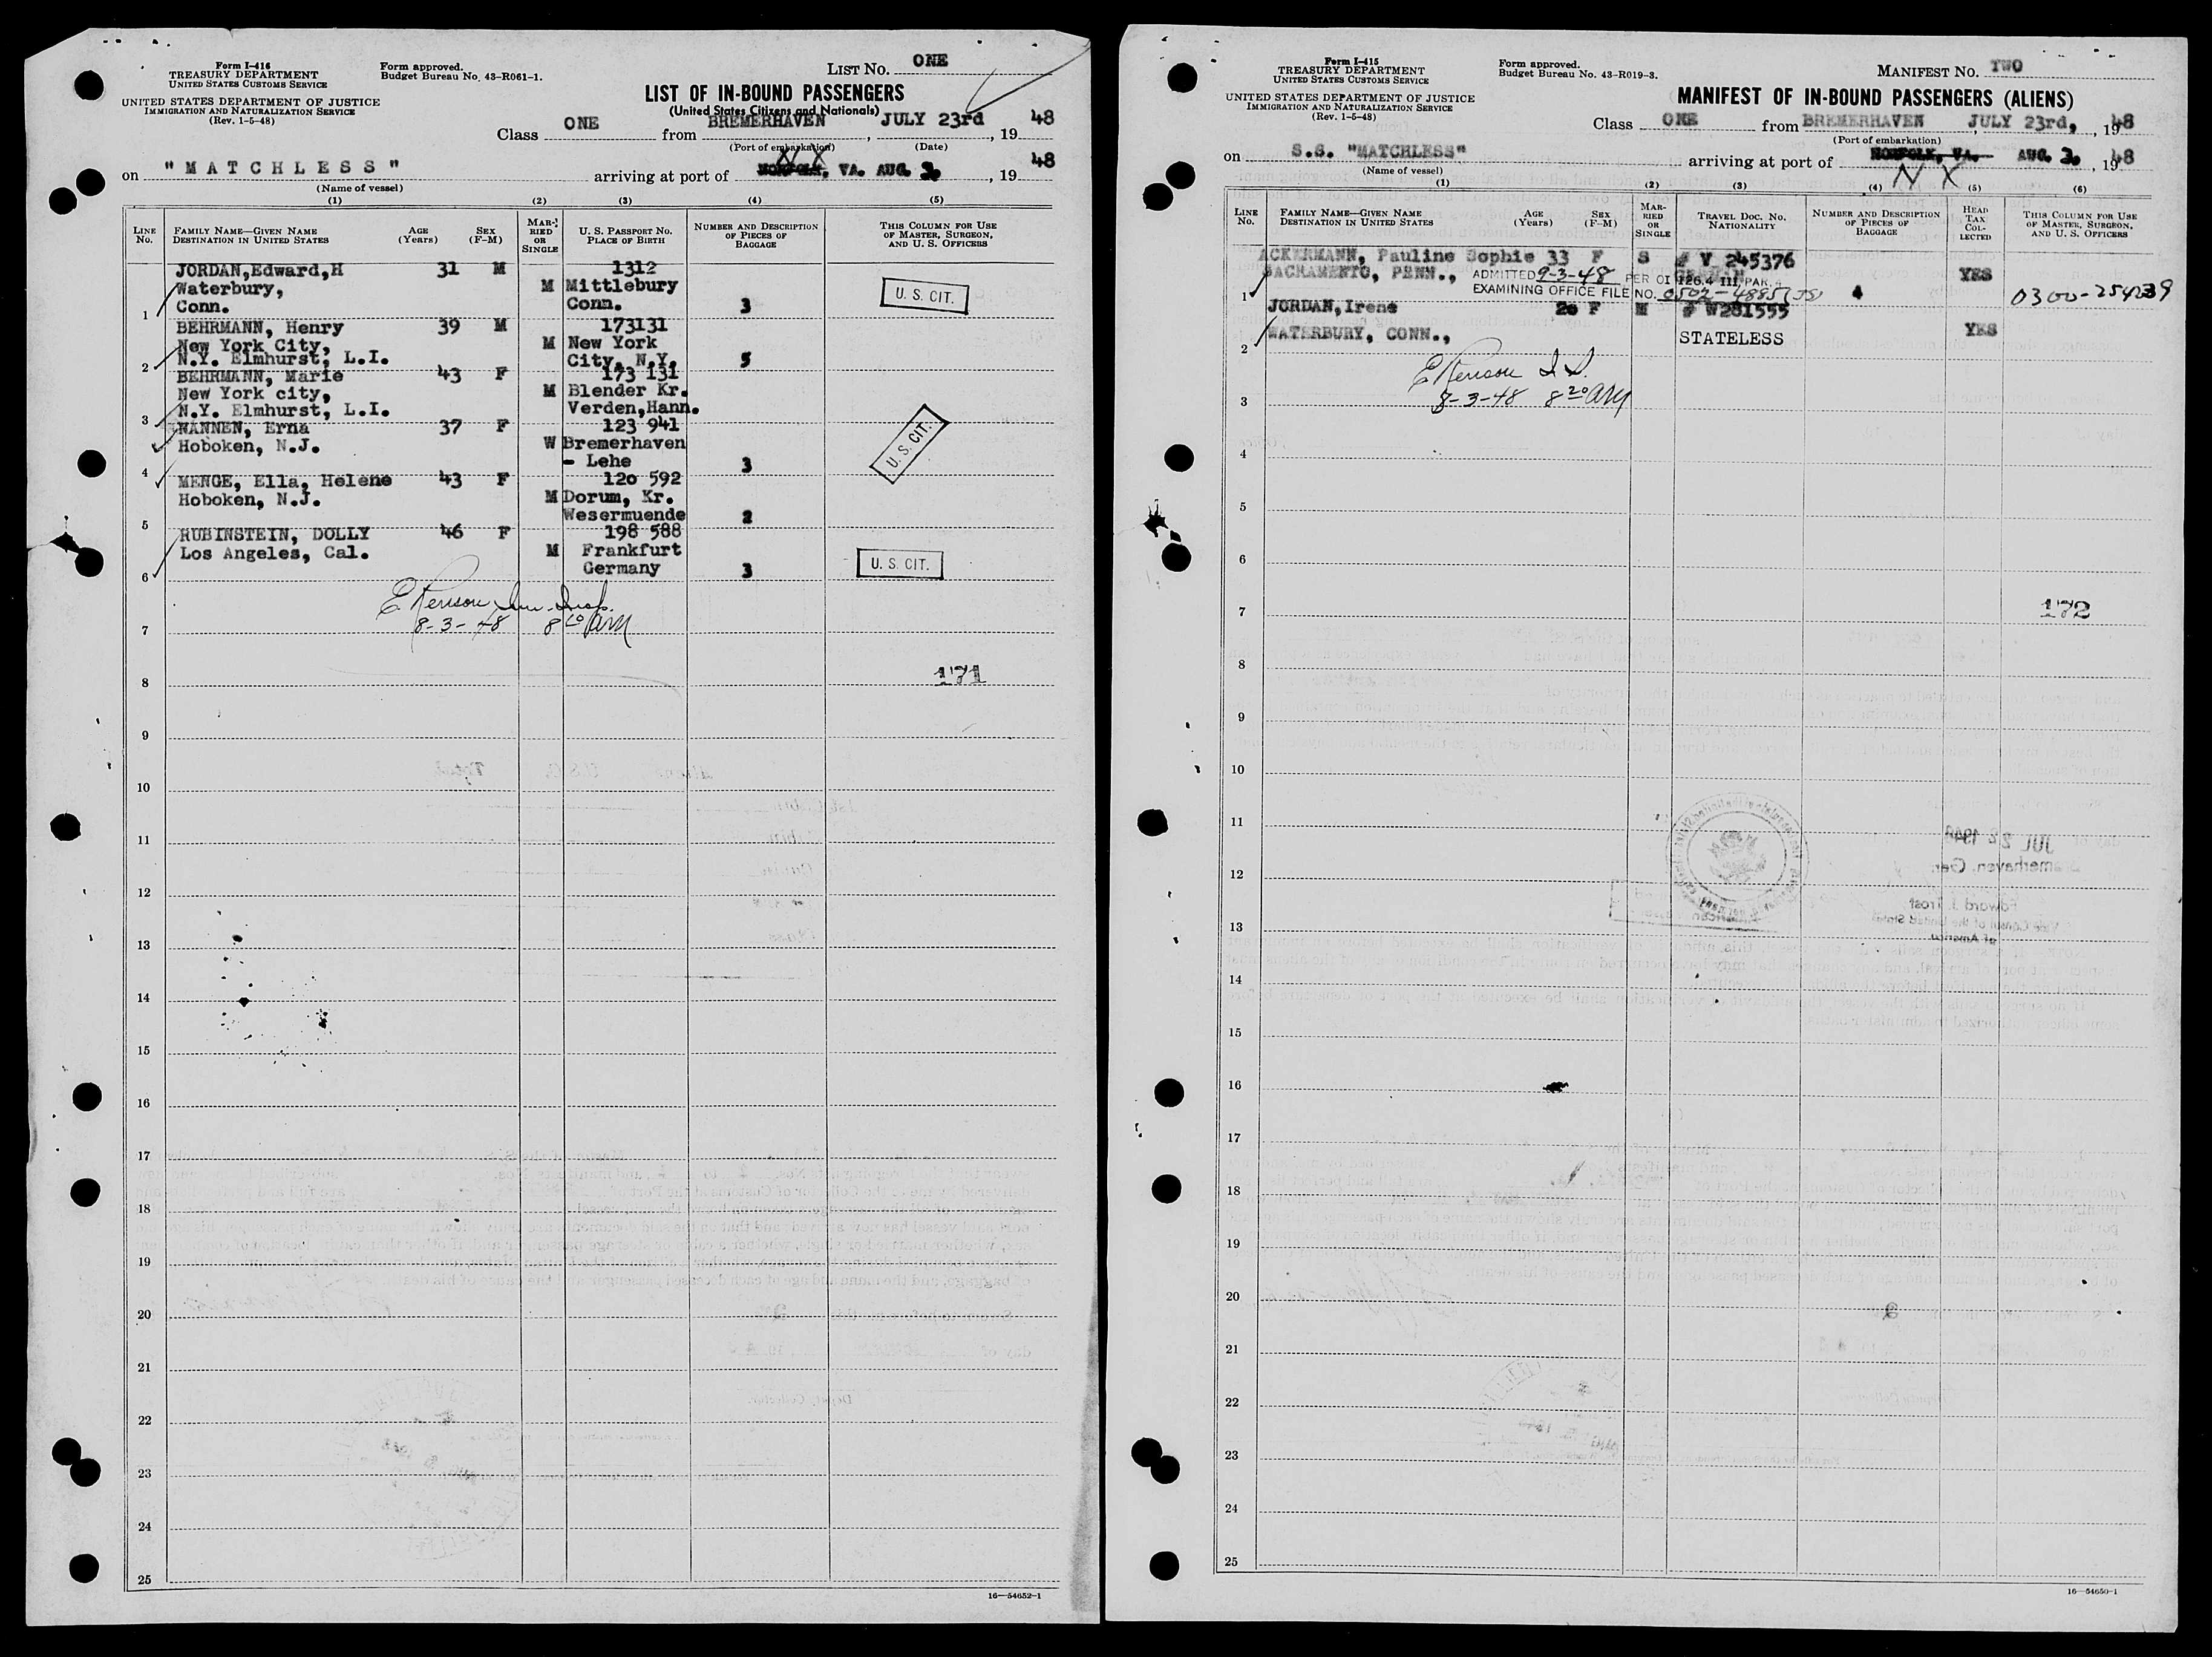 Form I-416
TREASURY DEPARTMENT
UNITED STATES CUSTOMS SERVICE
UNITED STATES DEPARTMENT OF JUSTICE
IMMIGRATION AND NATURALIZATION SERVICE
(Rev. 1-5-48)
Form approved.
Budget Bureau No. 43-R061-1.
LIST NO. ONE
LIST OF IN-BOUND PASSENGERS
(United States Citizens and Nationals)
Class ONE from BREMERHAVEN, JULY 23rd, 19 48
(Port of embarkation) (Date)
on "MATCHLESS" arriving at port of NORFOLK, VA. AUG. 3, 19 48
N Y
(Name of vessel)
(1) (2) (3) (4) (5)
LINE NO. FAMILY NAME—GIVEN NAME DESTINATION IN UNITED STATES AGE (Years) SEX (F-M) MARRIED OR SINGLE U. S. PASSPORT NO. PLACE OF BIRTH NUMBER AND DESCRIPTION OF PIECES OF BAGGAGE THIS COLUMN FOR USE OF MASTER, SURGEON, AND U. S. OFFICERS
JORDAN,Edward,H 31 M 1312
Waterbury, M Mittlebury U. S. CIT.
1 Conn. Conn. 3
BEHRMANN, Henry 39 M 173131
New York City, M New York
2 N.Y. Elmhurst, L.I. City, N.Y. 5
BEHRMANN, Marie 43 F 173 131
New York city, M Blender Kr.
3 N.Y. Elmhurst, L.I. Verden,Hann.
WANNEN, Erna 37 F 123 941
Hoboken, N.J. W Bremerhaven U. S. CIT.
4 - Lehe 3
MENGE, Ella, Helene 43 F 120 592
Hoboken, N.J. M Dorum, Kr.
5 Wesermuende 2
RUBINSTEIN, DOLLY 46 F 198 588
Los Angeles, Cal. M Frankfurt U. S. CIT.
6 Germany 3
7
8-3-48
8 171
9
10
11
12
13
14
15
16
17
18
19
20
21
22
23
24
25
16—54652-1
Form I-415
TREASURY DEPARTMENT
UNITED STATES CUSTOMS SERVICE
UNITED STATES DEPARTMENT OF JUSTICE
IMMIGRATION AND NATURALIZATION SERVICE
(Rev. 1-5-48)
Form approved.
Budget Bureau No. 43-R019-3.
MANIFEST NO. TWO
MANIFEST OF IN-BOUND PASSENGERS (ALIENS)
Class ONE from BREMERHAVEN JULY 23rd, 19 48
(Port of embarkation)
on S.S. "MATCHLESS" arriving at port of NORFOLK, VA. AUG. 3, 19 48
N Y
(Name of vessel)
(1) (2) (3) (4) (5) (6)
LINE NO. FAMILY NAME—GIVEN NAME DESTINATION IN UNITED STATES AGE (Years) SEX (F-M) MARRIED OR SINGLE TRAVEL DOC. NO. NATIONALITY NUMBER AND DESCRIPTION OF PIECES OF BAGGAGE HEAD TAX COLLECTED THIS COLUMN FOR USE OF MASTER, SURGEON, AND U. S. OFFICERS
ACKERMANN, Pauline Sophie 33 F S # V 245376
SACRAMENTO, PENN., ADMITTED 9-3-48 PER OI 126.4 III PAR. YES
1 EXAMINING OFFICE FILE NO. 4 0300-254239
JORDAN,Irene 20 F M # W281555
2 WATERBURY, CONN., STATELESS YES
3 8-3-48 8 20 AM
4
5
6
7 172
8
9
10
11
12
13
14
15
16
17
18
19
20
21
22
23
24
25
16—54650-1